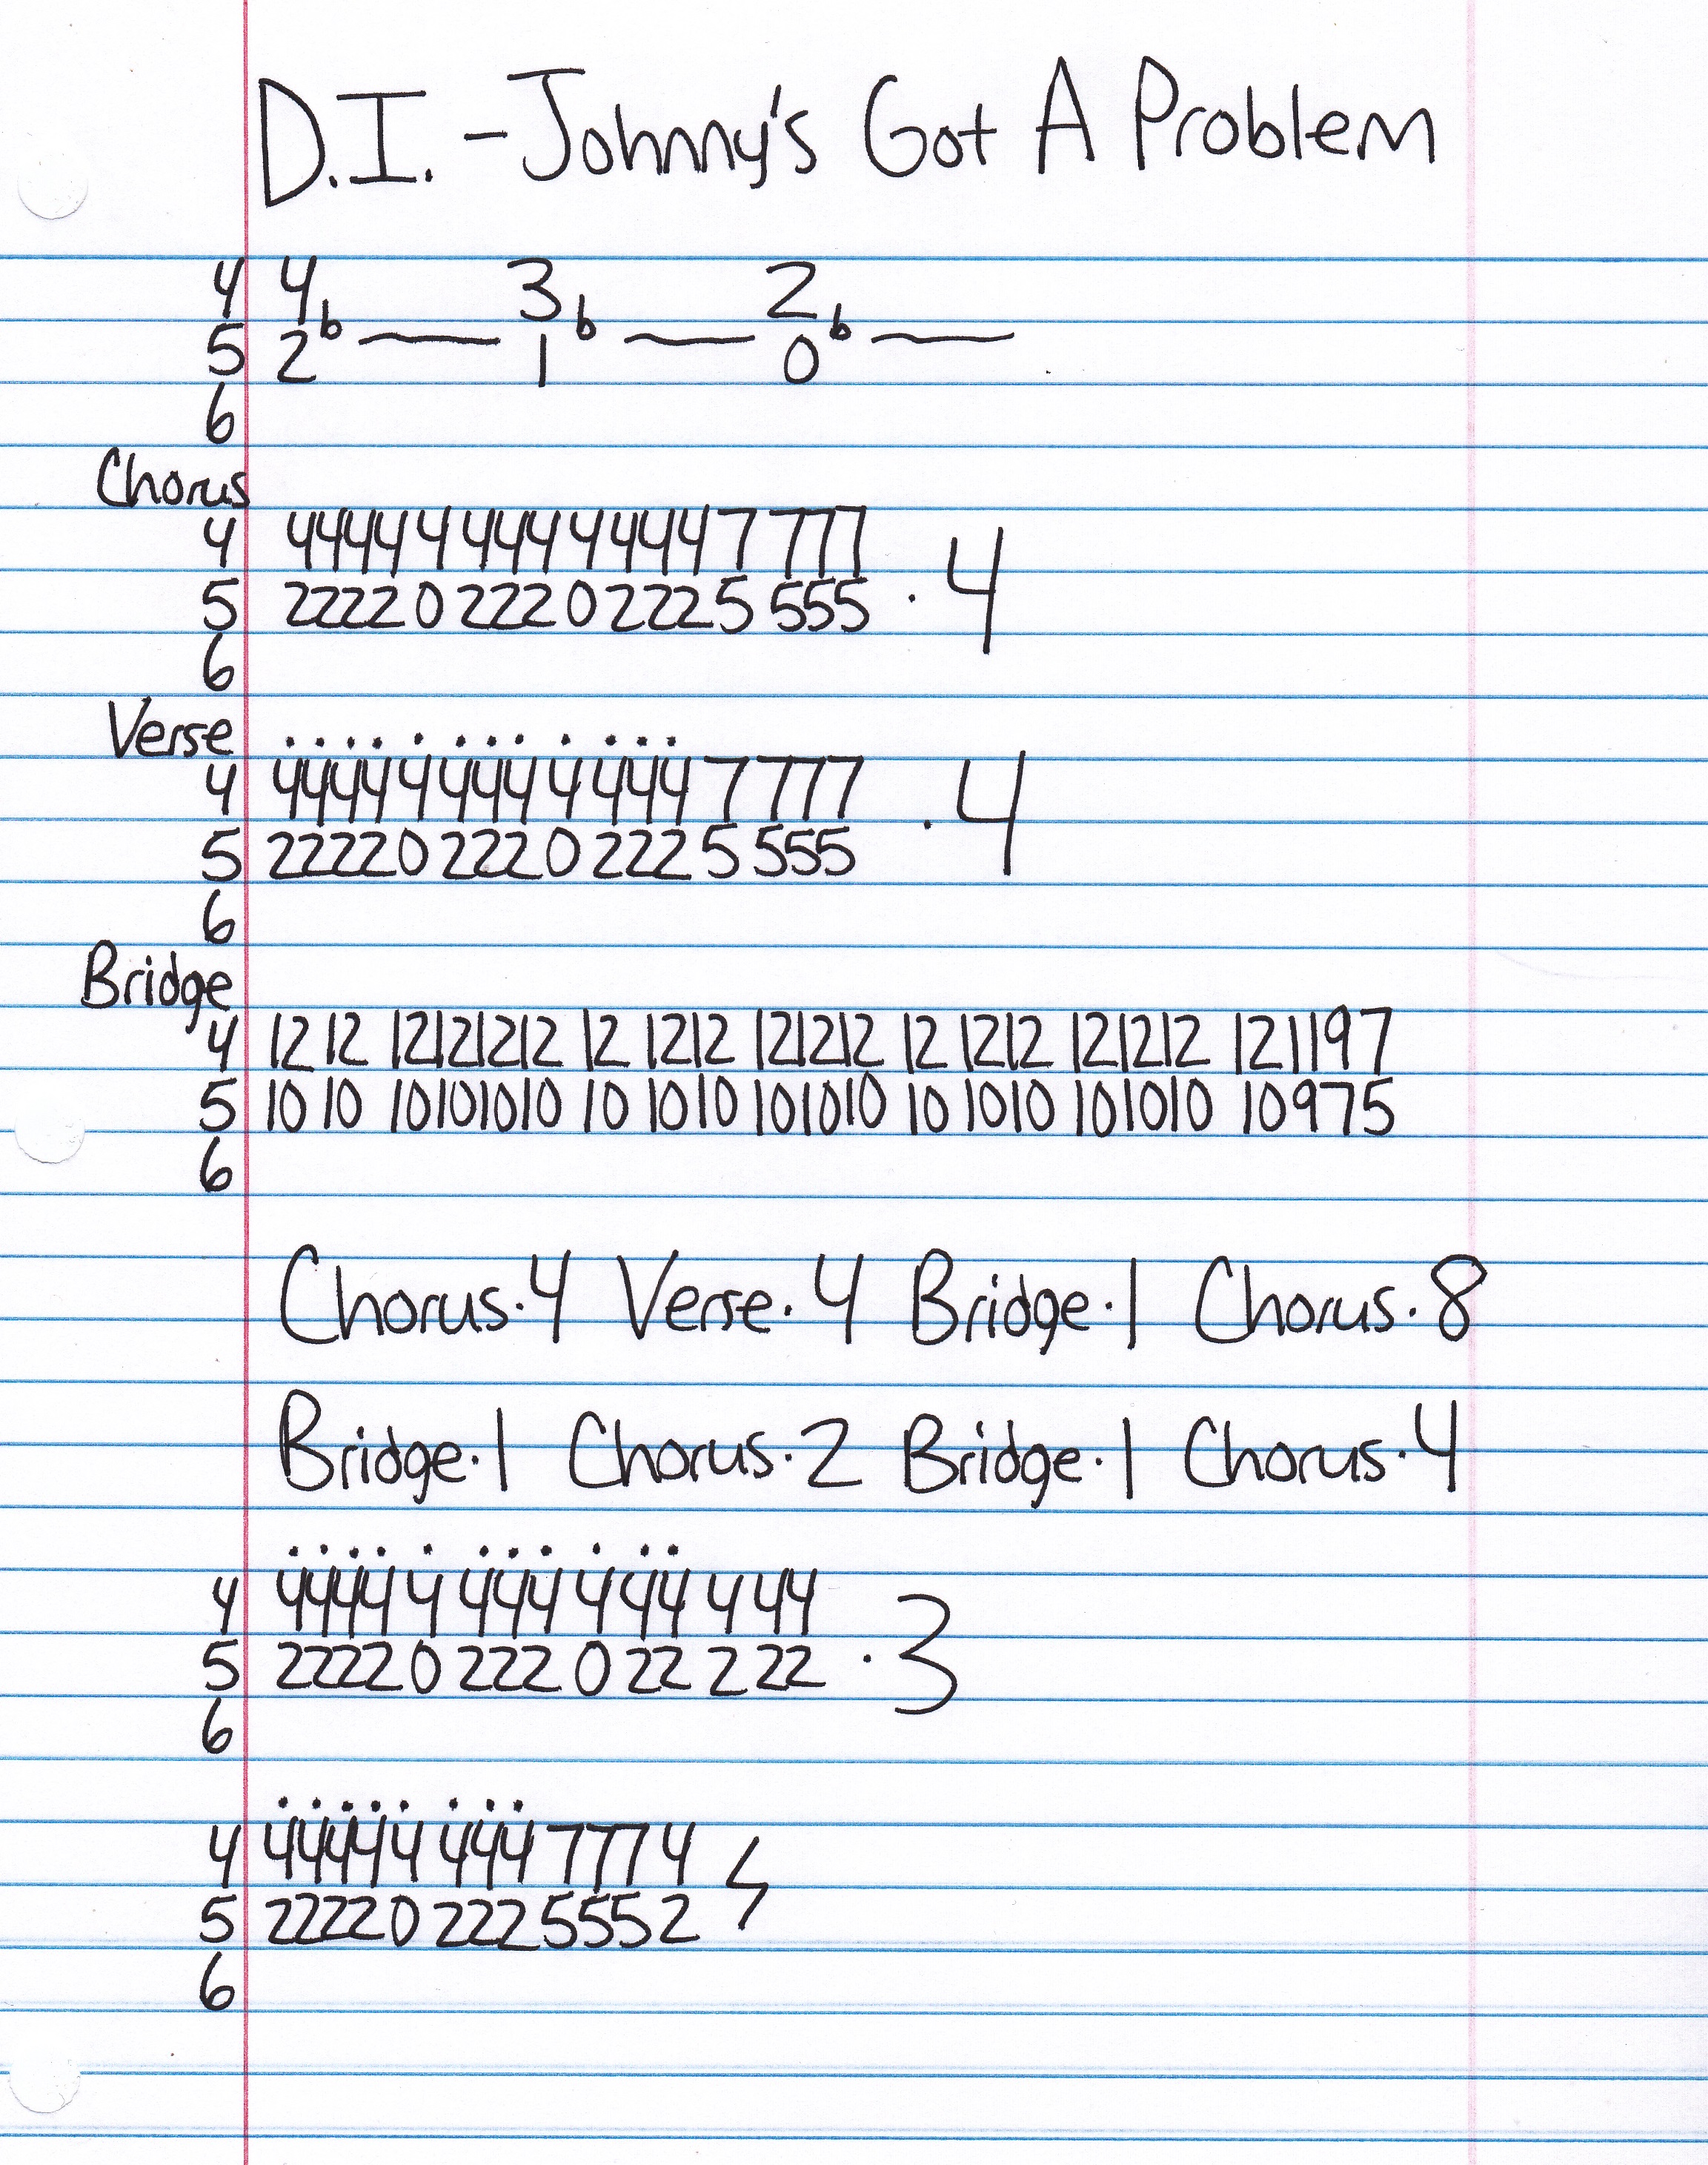 D.I. - Johnny's Got A Problem
4 4 3 2
b ___ b ___ b ___
5 2 1 0
6
Chorus
4 4444 4 444 4 444 7 777
· 4
5 2222 0 222 0 222 5 555
6
Verse
. . . . . . . . . . . .
4 4444 4 444 4 444 7 777
· 4
5 2222 0 222 0 222 5 555
6
Bridge
4 12 12 12121212 12 1212 121212 12 1212 121212 121197
5 10 10 10101010 10 1010 101010 10 1010 101010 10975
6
Chorus·4 Verse·4 Bridge·1 Chorus·8
Bridge·1 Chorus·2 Bridge·1 Chorus·4
. . . . . . . . . . .
4 4444 4 444 4 44 4 44
· 3
5 2222 0 222 0 22 2 22
6
. . . . . . . .
4 44444 444 777 4
5 22220 222 555 2
6